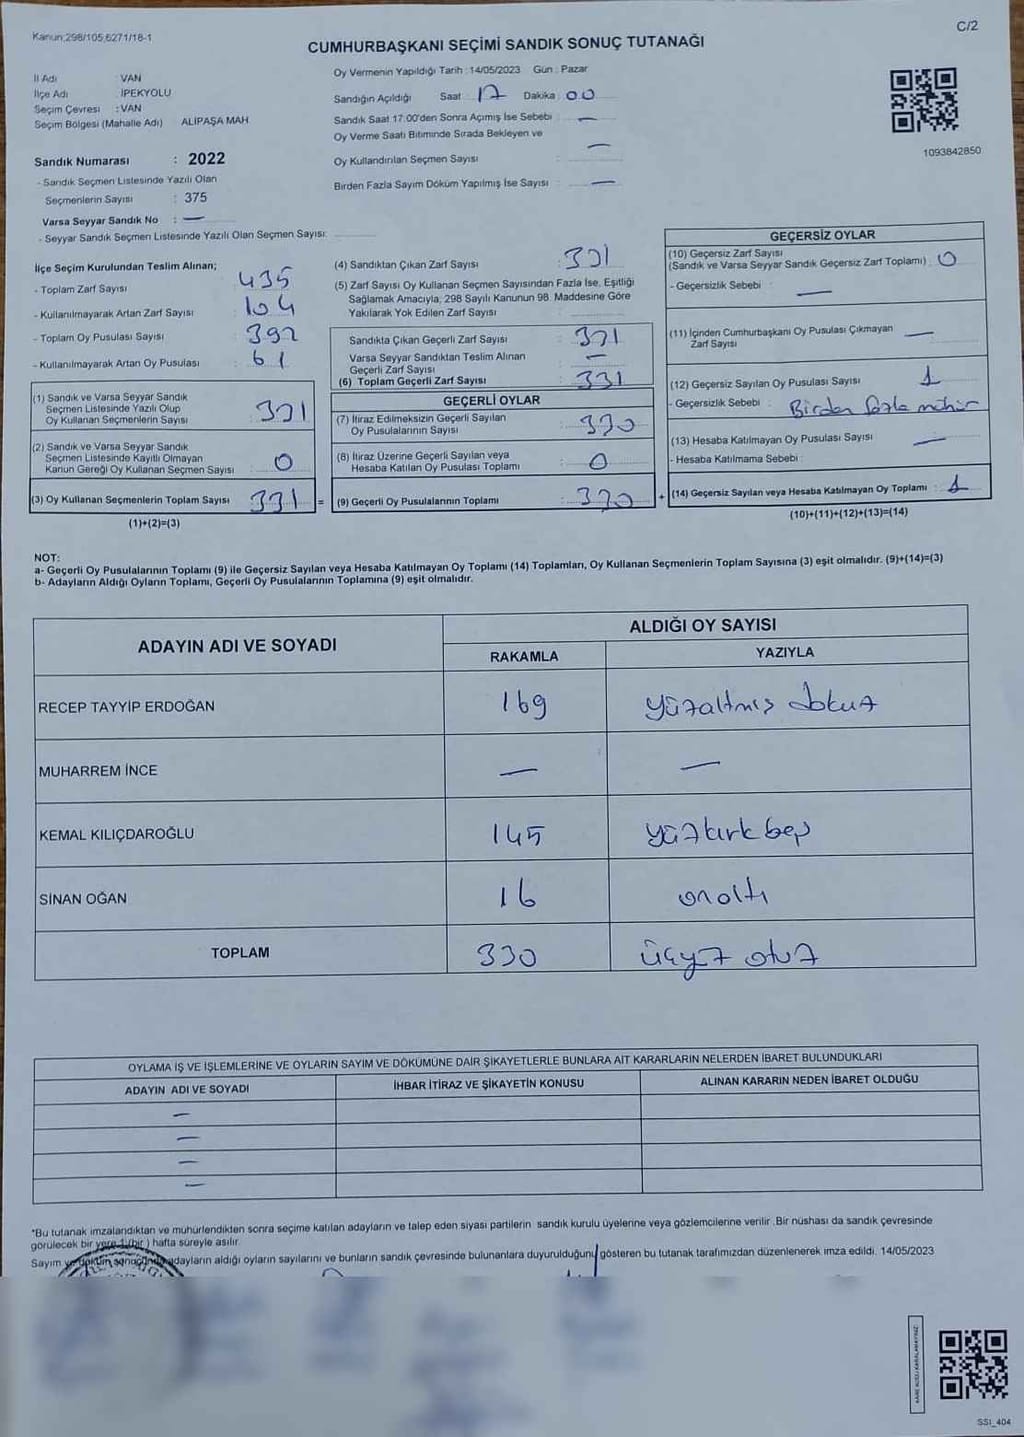 Kanun;298/105,6271/18-1
C/2
CUMHURBAŞKANI SEÇİMİ SANDIK SONUÇ TUTANAĞI
İl Adı : VAN
İlçe Adı : İPEKYOLU
Seçim Çevresi : VAN
Seçim Bölgesi (Mahalle Adı) ALİPAŞA MAH
Sandık Numarası : 2022
- Sandık Seçmen Listesinde Yazılı Olan
Seçmenlerin Sayısı : 375
Varsa Seyyar Sandık No : —
- Seyyar Sandık Seçmen Listesinde Yazılı Olan Seçmen Sayısı:
Oy Vermenin Yapıldığı Tarih : 14/05/2023 Gün : Pazar
Sandığın Açıldığı Saat : 17 Dakika : 00
Sandık Saat 17:00'den Sonra Açımış İse Sebebi : —
Oy Verme Saati Bitiminde Sırada Bekleyen ve
Oy Kullandırılan Seçmen Sayısı : —
Birden Fazla Sayım Döküm Yapılmış İse Sayısı : —
1093842850
İlçe Seçim Kurulundan Teslim Alınan;
- Toplam Zarf Sayısı : 435
- Kullanılmayarak Artan Zarf Sayısı : 104
- Toplam Oy Pusulası Sayısı : 392
- Kullanılmayarak Artan Oy Pusulası : 61
(1) Sandık ve Varsa Seyyar Sandık
Seçmen Listesinde Yazılı Olup
Oy Kullanan Seçmenlerin Sayısı : 331
(2) Sandık ve Varsa Seyyar Sandık
Seçmen Listesinde Kayıtlı Olmayan
Kanun Gereği Oy Kullanan Seçmen Sayısı : 0
(3) Oy Kullanan Seçmenlerin Toplam Sayısı 331 =
(1)+(2)=(3)
(4) Sandıktan Çıkan Zarf Sayısı : 331
(5) Zarf Sayısı Oy Kullanan Seçmen Sayısından Fazla İse, Eşitliği
Sağlamak Amacıyla, 298 Sayılı Kanunun 98. Maddesine Göre
Yakılarak Yok Edilen Zarf Sayısı :
Sandıkta Çıkan Geçerli Zarf Sayısı : 331
Varsa Seyyar Sandıktan Teslim Alınan
Geçerli Zarf Sayısı : —
(6) Toplam Geçerli Zarf Sayısı : 331
GEÇERLİ OYLAR
(7) İtiraz Edilmeksizin Geçerli Sayılan
Oy Pusulalarının Sayısı : 330
(8) İtiraz Üzerine Geçerli Sayılan veya
Hesaba Katılan Oy Pusulası Toplamı : 0
(9) Geçerli Oy Pusulalarının Toplamı : 330 +
GEÇERSİZ OYLAR
(10) Geçersiz Zarf Sayısı
(Sandık ve Varsa Seyyar Sandık Geçersiz Zarf Toplamı) : 0
- Geçersizlik Sebebi : —
(11) İçinden Cumhurbaşkanı Oy Pusulası Çıkmayan
Zarf Sayısı —
(12) Geçersiz Sayılan Oy Pusulası Sayısı : 1
- Geçersizlik Sebebi : Birden fazla mühür
(13) Hesaba Katılmayan Oy Pusulası Sayısı : —
- Hesaba Katılmama Sebebi :
(14) Geçersiz Sayılan veya Hesaba Katılmayan Oy Toplamı : 1
(10)+(11)+(12)+(13)=(14)
NOT:
a- Geçerli Oy Pusulalarının Toplamı (9) ile Geçersiz Sayılan veya Hesaba Katılmayan Oy Toplamı (14) Toplamları, Oy Kullanan Seçmenlerin Toplam Sayısına (3) eşit olmalıdır. (9)+(14)=(3)
b- Adayların Aldığı Oyların Toplamı, Geçerli Oy Pusulalarının Toplamına (9) eşit olmalıdır.
ADAYIN ADI VE SOYADI
ALDIĞI OY SAYISI
RAKAMLA YAZIYLA
RECEP TAYYİP ERDOĞAN 169 yüzaltmış dokuz
MUHARREM İNCE — —
KEMAL KILIÇDAROĞLU 145 yüzkırk beş
SİNAN OĞAN 16 onaltı
TOPLAM 330 üçyüz otuz
OYLAMA İŞ VE İŞLEMLERİNE VE OYLARIN SAYIM VE DÖKÜMÜNE DAİR ŞİKAYETLERLE BUNLARA AİT KARARLARIN NELERDEN İBARET BULUNDUKLARI
ADAYIN ADI VE SOYADI İHBAR İTİRAZ VE ŞİKAYETİN KONUSU ALINAN KARARIN NEDEN İBARET OLDUĞU
—
—
—
—
*Bu tutanak imzalandıktan ve mühürlendikten sonra seçime katılan adayların ve talep eden siyasi partilerin sandık kurulu üyelerine veya gözlemcilerine verilir. Bir nüshası da sandık çevresinde
görülecek bir yere 1 (bir) hafta süreyle asılır.
Sayım ve döküm sonucunda adayların aldığı oyların sayılarını ve bunların sandık çevresinde bulunanlara duyurulduğunu gösteren bu tutanak tarafımızdan düzenlenerek imza edildi. 14/05/2023
SSI_404